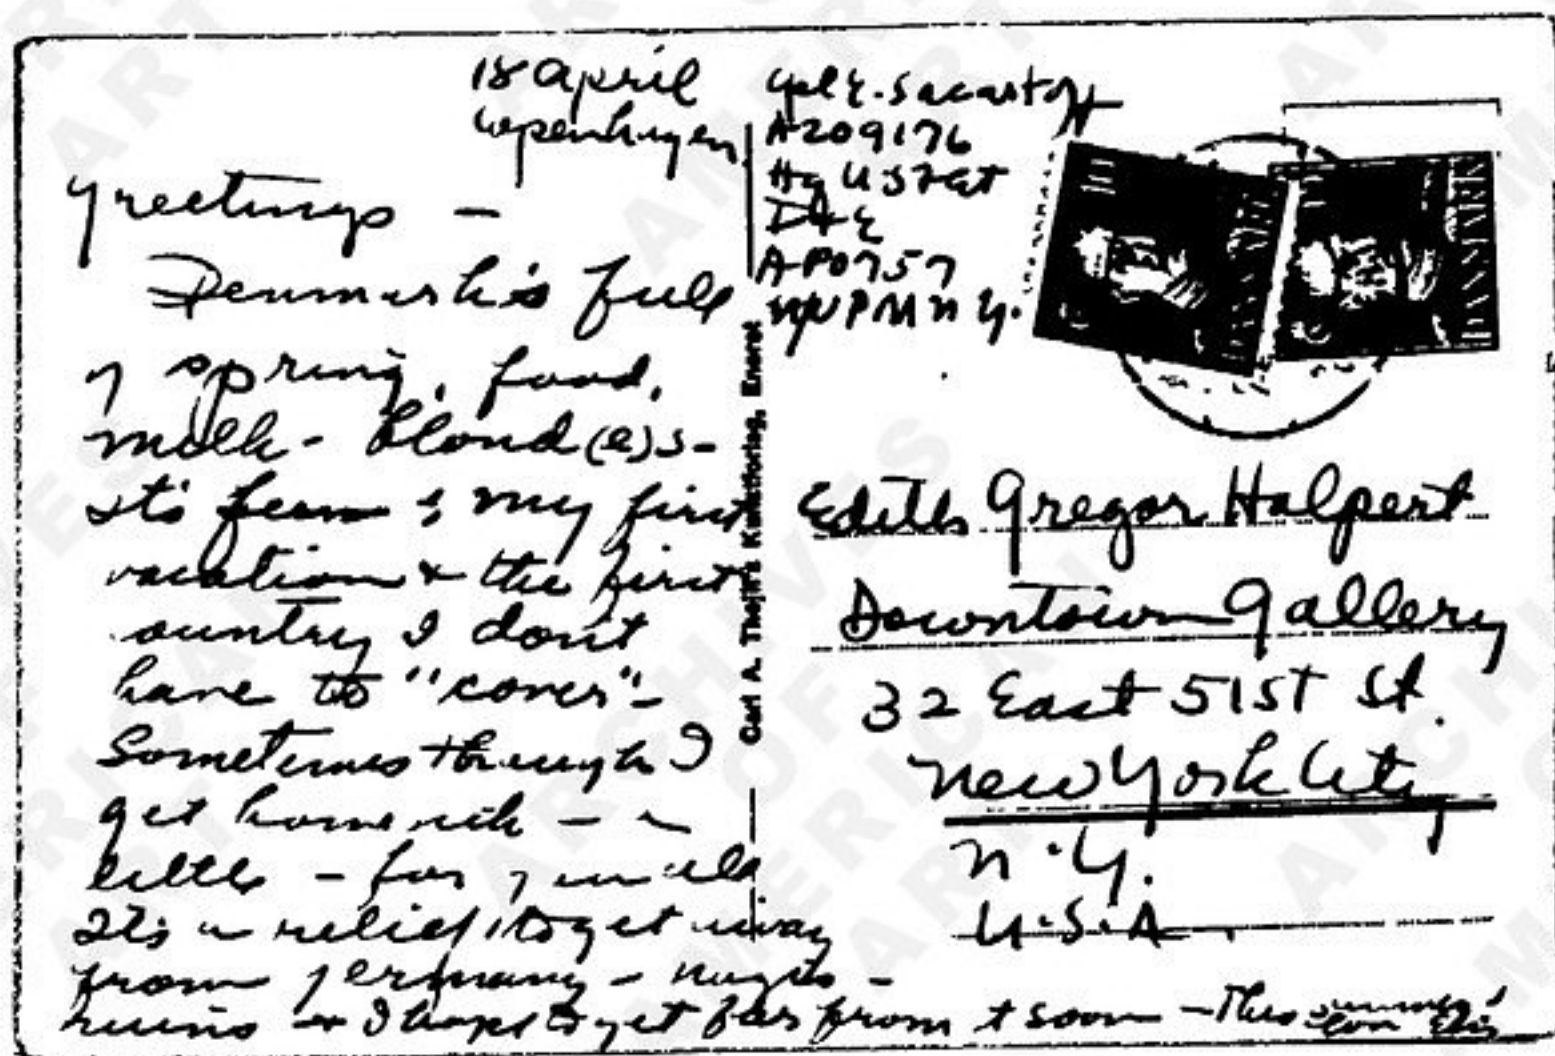 18 April
Copenhagen
Greetings -
Denmark's full
of spring, food,
milk - blond(e)s -
It's fun & my first
vacation & the first
country I don't
have to "cover" -
Sometimes though I
get homesick - a
little - for
It's a relief to get away
from Germany - Nazis -
ruins & I hope to get far from it soon - This summer!
E. Sacartoff
A209176
Hq US
APO757
N.Y.
Edith Gregor Halpert
Downtown Gallery
32 East 51st St.
New York City
N.Y.
U.S.A.
DANMARK
DANMARK